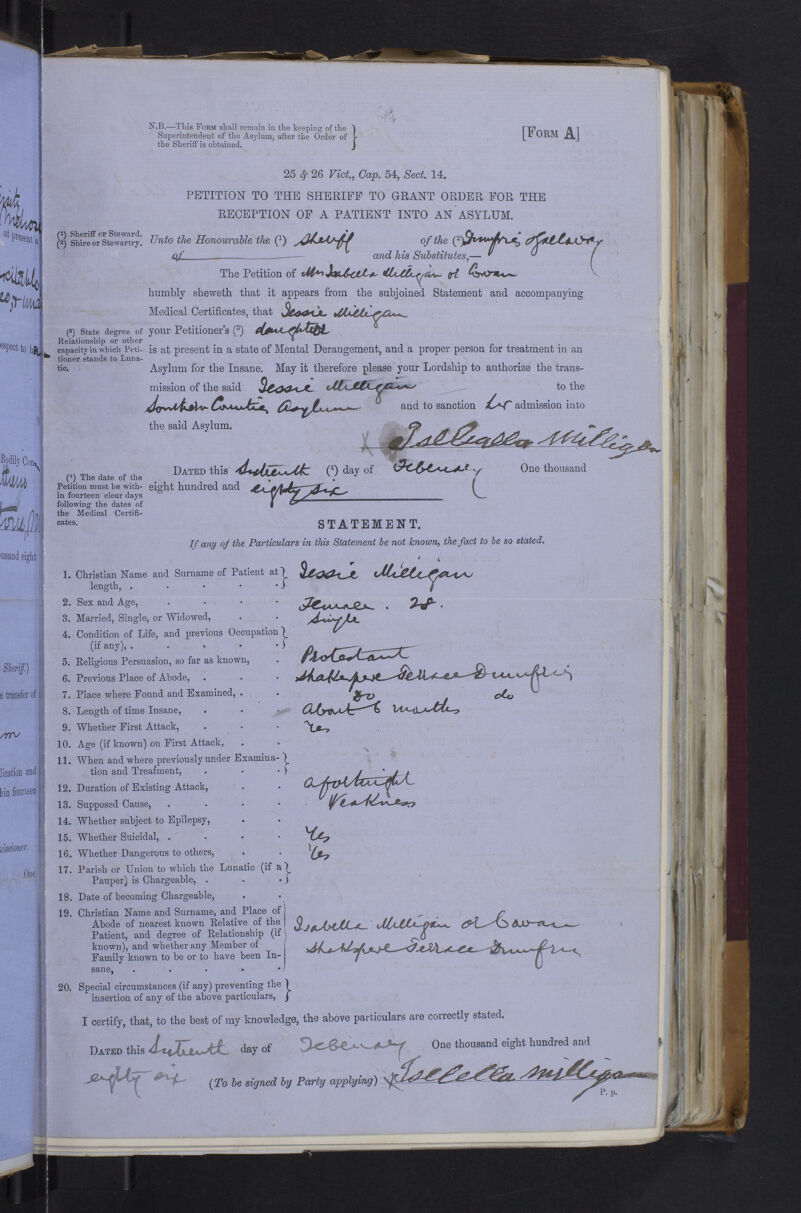 N.B.—This Form shall remain in the keeping of the
Superintendent of the Asylum, after the Order of
the Sheriff is obtained.
[Form A]
25 & 26 Vict., Cap. 54, Sect. 14.
PETITION TO THE SHERIFF TO GRANT ORDER FOR THE
RECEPTION OF A PATIENT INTO AN ASYLUM.
(¹) Sheriff or Steward.
(²) Shire or Stewartry.
Unto the Honourable the (¹) Sheriff of the (²) Dumfries & Galloway
of and his Substitutes,—
The Petition of Mrs Isabella Milligan or Cowan
humbly sheweth that it appears from the subjoined Statement and accompanying
Medical Certificates, that Jessie Milligan
(³) State degree of
Relationship or other
capacity in which Peti-
tioner stands to Luna-
tic.
your Petitioner's (³) daughter
is at present in a state of Mental Derangement, and a proper person for treatment in an
Asylum for the Insane. May it therefore please your Lordship to authorize the trans-
mission of the said Jessie Milligan to the
Southern Counties Asylum and to sanction her admission into
the said Asylum.
X Isllealla Milligan
(⁴) The date of the
Petition must be with-
in fourteen clear days
following the dates of
the Medical Certifi-
cates.
Dated this Sixteenth (⁴) day of Feberuary One thousand
eight hundred and eighty six
STATEMENT.
If any of the Particulars in this Statement be not known, the fact to be so stated.
1. Christian Name and Surname of Patient at length, . Jessie Milligan
2. Sex and Age, Female . 28.
3. Married, Single, or Widowed, Single
4. Condition of Life, and previous Occupation (if any),
5. Religious Persuasion, so far as known, Protestant
6. Previous Place of Abode, Shakespere Terrace Dumfries
7. Place where Found and Examined, Do do
8. Length of time Insane, About 6 months
9. Whether First Attack, Yes
10. Age (if known) on First Attack,
11. When and where previously under Examina-
tion and Treatment,
12. Duration of Existing Attack, a fortnight
13. Supposed Cause, Weakness
14. Whether subject to Epilepsy,
15. Whether Suicidal, Yes
16. Whether Dangerous to others, Yes
17. Parish or Union to which the Lunatic (if a
Pauper) is Chargeable,
18. Date of becoming Chargeable,
19. Christian Name and Surname, and Place of
Abode of nearest known Relative of the
Patient, and degree of Relationship (if
known), and whether any Member of
Family known to be or to have been In-
sane,
Isabella Milligan or Cowan
Shakspere Terrace Dumfries
20. Special circumstances (if any) preventing the
insertion of any of the above particulars,
I certify, that, to the best of my knowledge, the above particulars are correctly stated.
Dated this Sixteenth day of Feberuary One thousand eight hundred and
eighty six (To be signed by Party applying) X Isllella Milligan
P. p.